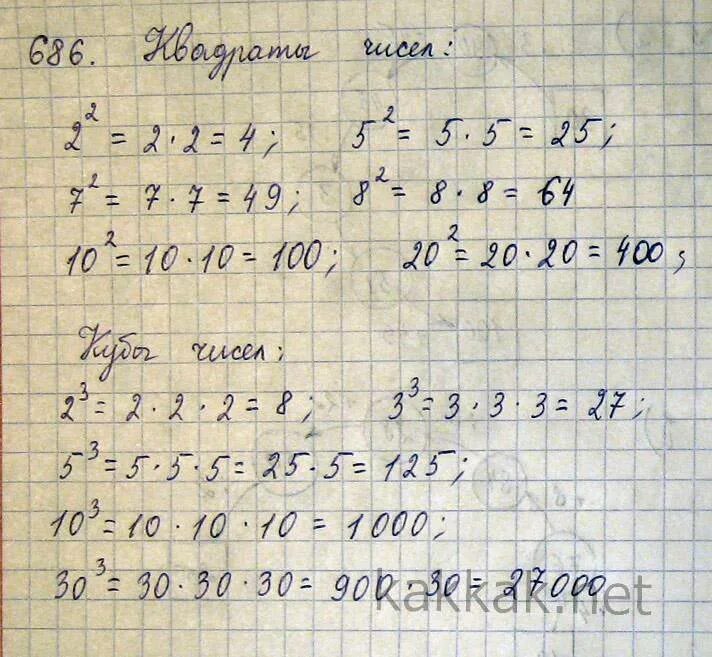 686. Квадраты чисел:
2² = 2 · 2 = 4; 5² = 5 · 5 = 25;
7² = 7 · 7 = 49; 8² = 8 · 8 = 64
10² = 10 · 10 = 100; 20² = 20 · 20 = 400;
Кубы чисел:
2³ = 2 · 2 · 2 = 8; 3³ = 3 · 3 · 3 = 27;
5³ = 5 · 5 · 5 = 25 · 5 = 125;
10³ = 10 · 10 · 10 = 1000;
30³ = 30 · 30 · 30 = 900 · 30 = 27000
kakkak.net